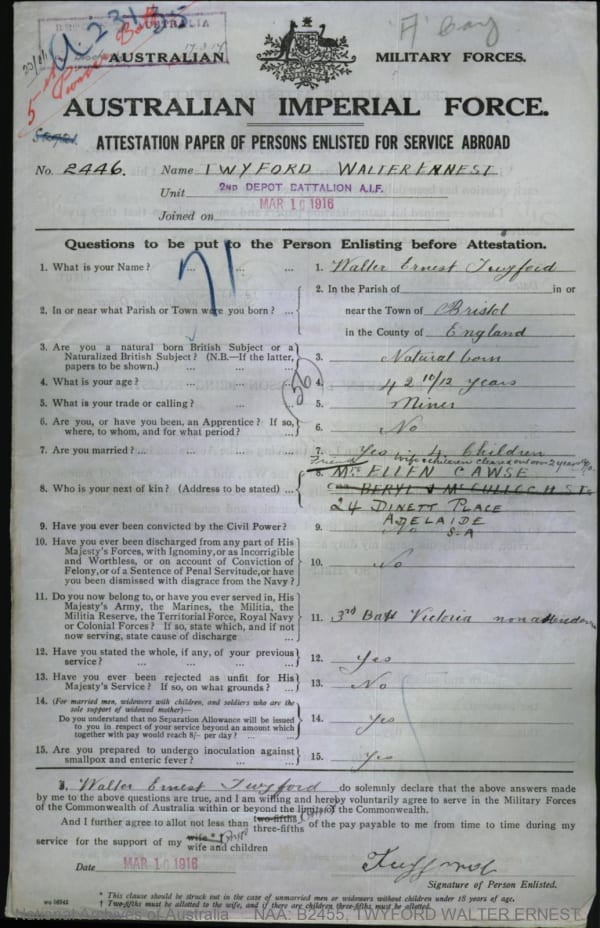 AUSTRALIA
17.3.17
5th
Pioneer Batt
"A" Bay
AUSTRALIAN MILITARY FORCES.
AUSTRALIAN IMPERIAL FORCE.
ATTESTATION PAPER OF PERSONS ENLISTED FOR SERVICE ABROAD
No. 2446. Name TWYFORD WALTER ERNEST
Unit 2ND DEPOT BATTALION A.I.F.
MAR 10 1916
Joined on
Questions to be put to the Person Enlisting before Attestation.
71
1. What is your Name? ... ... ... 1. Walter Ernest Twyford
2. In or near what Parish or Town were you born? ... 2. In the Parish of in or
near the Town of Bristol
in the County of England
3. Are you a natural born British Subject or a
Naturalized British Subject? (N.B.—If the latter,
papers to be shown.) ... ... 3. Natural born
4. What is your age? ... ... ... 4. 42 10/12 years
5. What is your trade or calling? ... ... 5. Miner
6. Are you, or have you been, an Apprentice? If so,
where, to whom, and for what period? ... 6. No
7. Are you married? ... ... ... ... 7. Yes 4 Children
Friend wife & children cleared out over 2 years ago
8. Who is your next of kin? (Address to be stated) ... 8. Mrs ELLEN CAWSE
BERYL McCULLOCH ST
24 DINETT PLACE
ADELAIDE
S.A
9. Have you ever been convicted by the Civil Power? 9. No
10. Have you ever been discharged from any part of His
Majesty's Forces, with Ignominy, or as Incorrigible
and Worthless, or on account of Conviction of
Felony, or of a Sentence of Penal Servitude, or have
you been dismissed with disgrace from the Navy? 10. No
11. Do you now belong to, or have you ever served in, His
Majesty's Army, the Marines, the Militia, the
Militia Reserve, the Territorial Force, Royal Navy
or Colonial Forces? If so, state which, and if not
now serving, state cause of discharge 11. 3rd Batt Victoria non attendance
12. Have you stated the whole, if any, of your previous
service? ... ... ... ... 12. Yes
13. Have you ever been rejected as unfit for His
Majesty's Service? If so, on what grounds? ... 13. No
14. (For married men, widowers with children, and soldiers who are the
sole support of widowed mother)—
Do you understand that no Separation Allowance will be issued
to you in respect of your service beyond an amount which
together with pay would reach 8/- per day? ... ... 14. Yes
15. Are you prepared to undergo inoculation against
smallpox and enteric fever? ... ... 15. Yes
I, Walter Ernest Twyford do solemnly declare that the above answers made
by me to the above questions are true, and I am willing and hereby voluntarily agree to serve in the Military Forces
of the Commonwealth of Australia within or beyond the limits of the Commonwealth.
And I further agree to allot not less than two-fifths three-fifths of the pay payable to me from time to time during my
service for the support of my wife * † wife and children
Date MAR 10 1916
Twyford
Signature of Person Enlisted.
* This clause should be struck out in the case of unmarried men or widowers without children under 18 years of age.
† Two-fifths must be allotted to the wife, and if there are children three-fifths must be allotted.
National Archives of Australia NAA: B2455, TWYFORD WALTER ERNEST